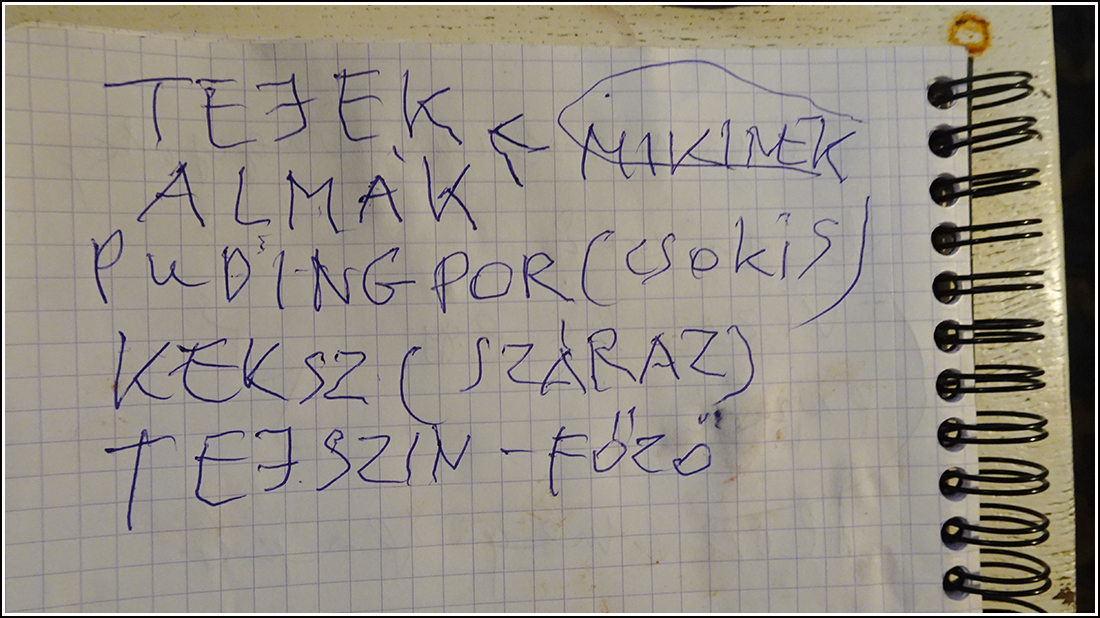 TEJEK < MAKINEK
ALMÁK
PUDINGPOR (CSOKIS)
KEKSZ (SZÁRAZ)
TEJSZIN - FŐZŐ